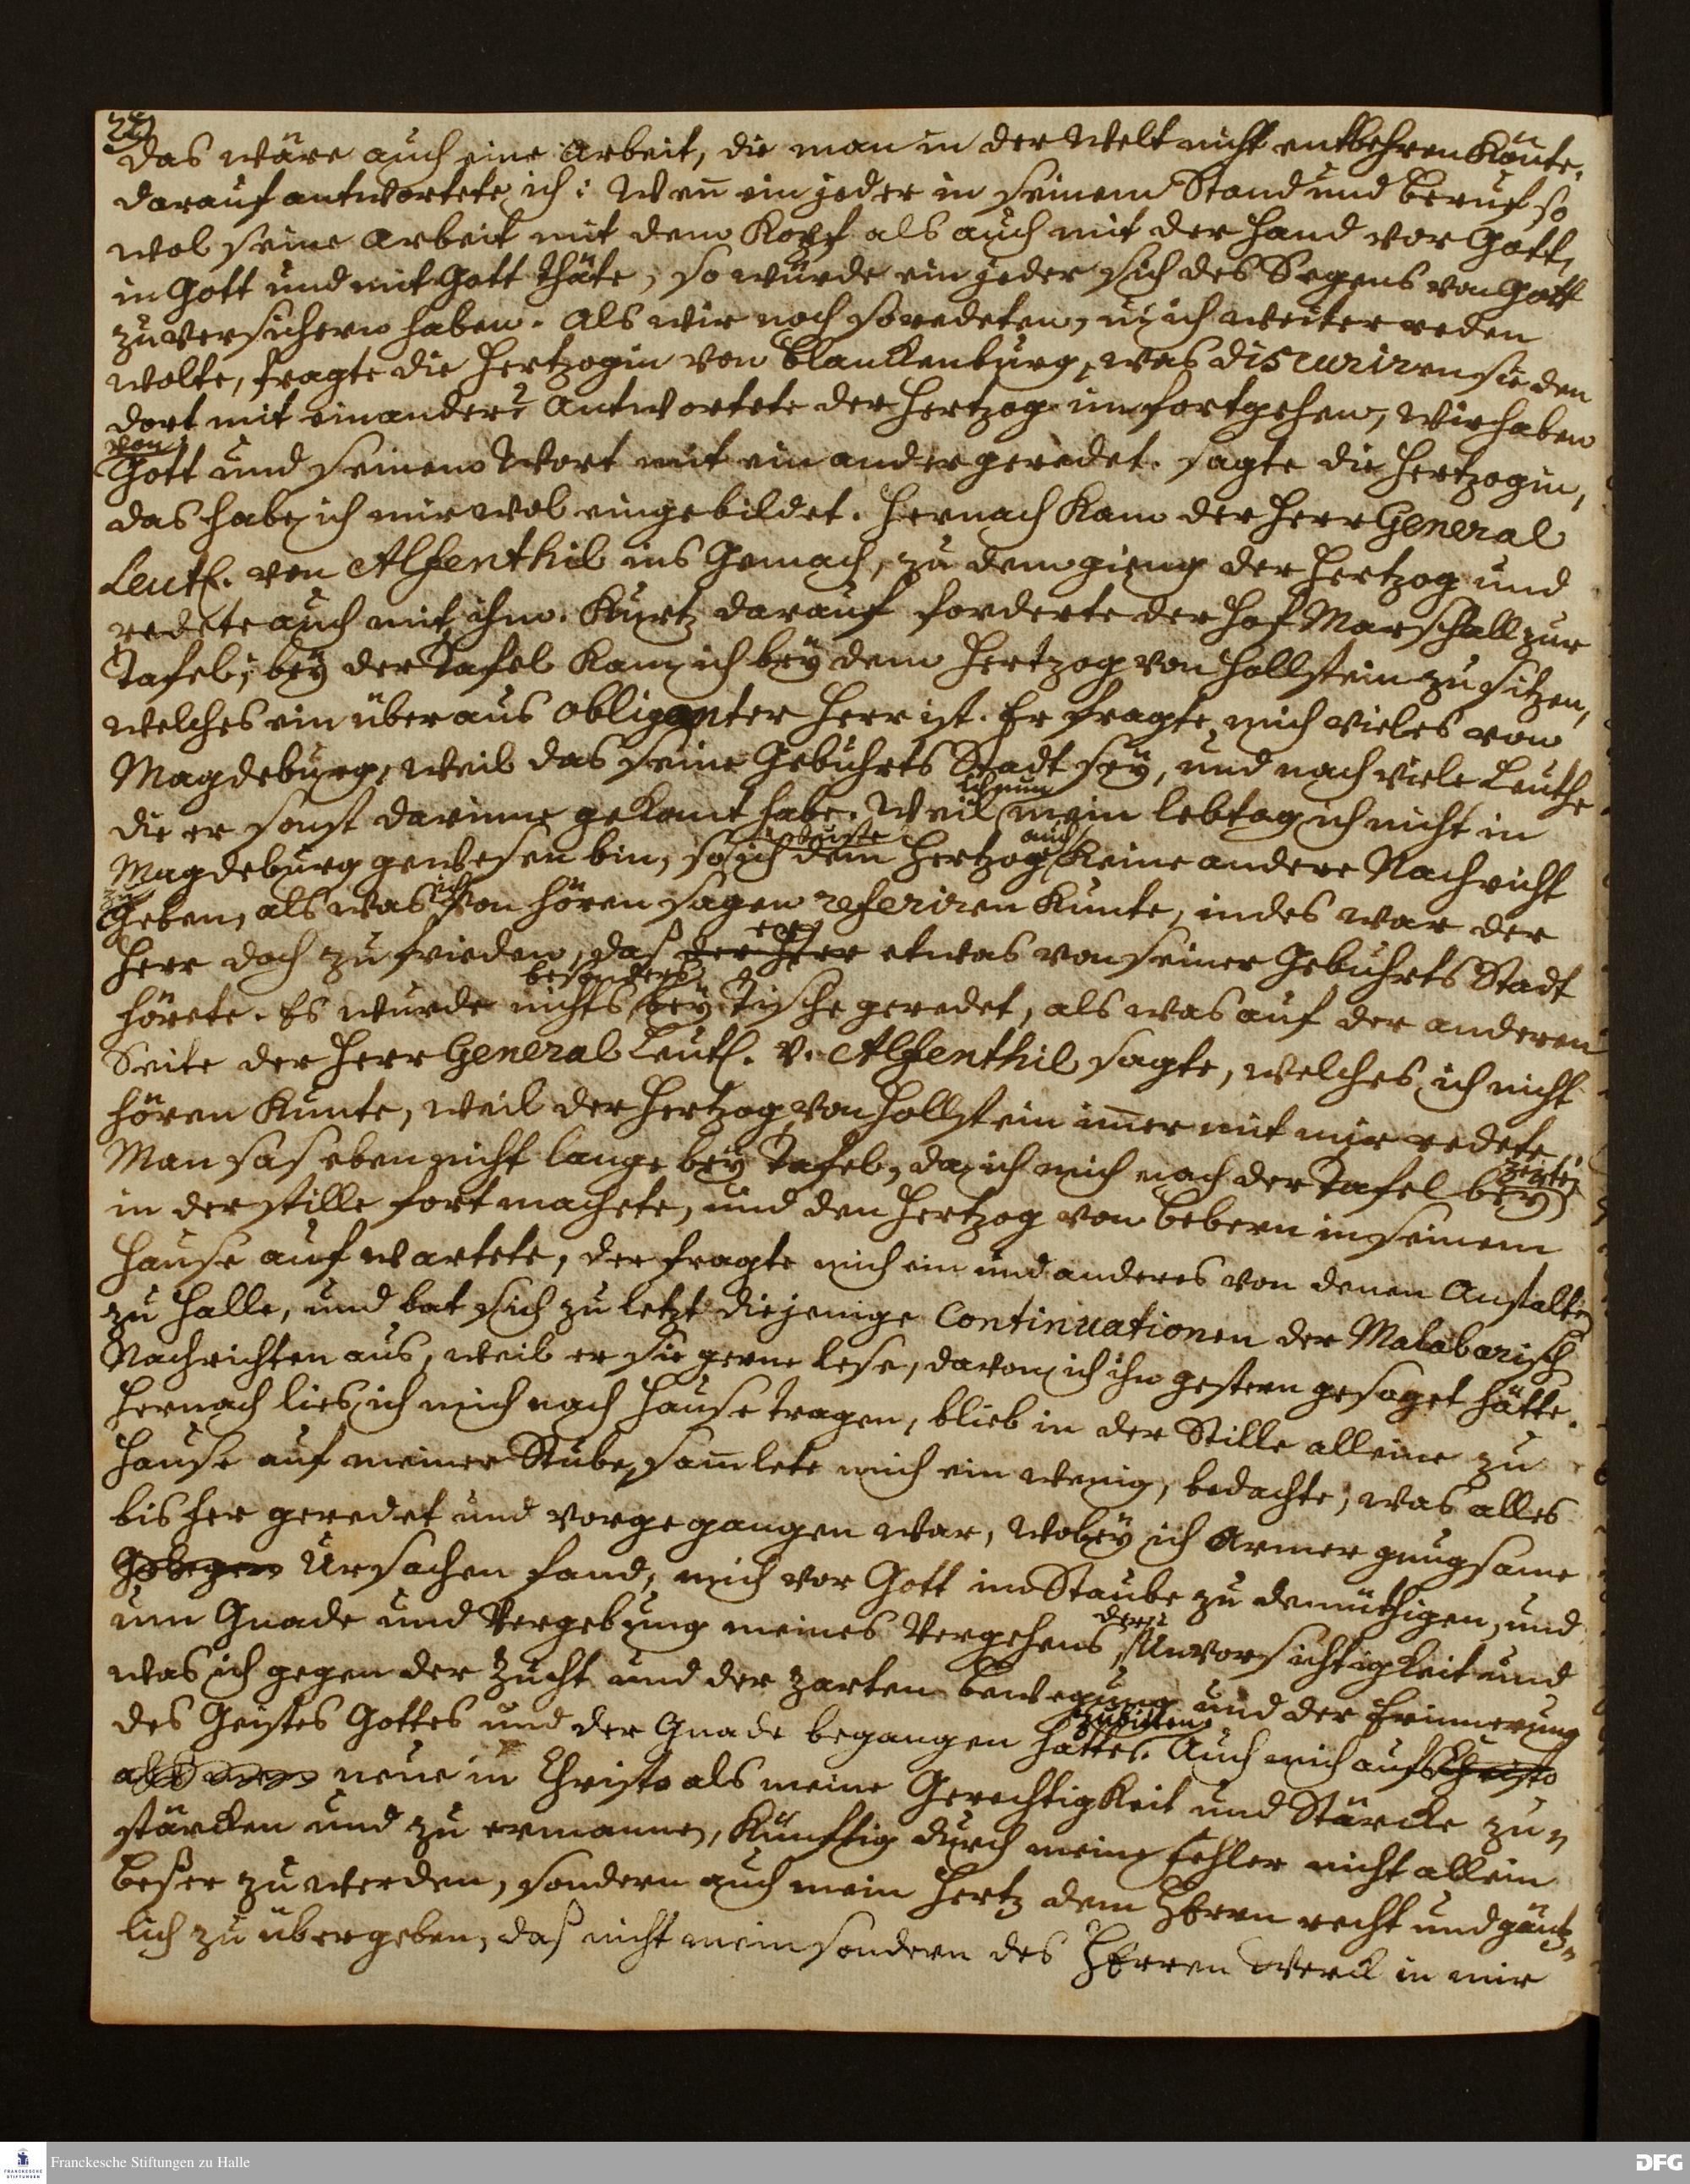 das wäre auch eine Arbeit, die man in der Welt nicht entbehren könte.
darauf antwortete ich: Weñ ein jeder in seinem Stand und beruf so
wol seine Arbeit mit dem Kopf als auch mit der Hand vor Gott,
in Gott und mit Gott thäte, so würde ein jeder sich des Segens von Gott
zu versichern haben. Als wir noch so redeten, u. ich weiter reden
wolte, fragte die Hertzogin von Blanckenburg, was discuriren sie den
dort mit einander? Antwortete der Hertzog im fortgehen, wir haben
von
Gott und seinem Wort mit einander geredet. sagte die Hertzogin,
das habe ich mir wol eingebildet. Hernach kam der Herr General
Leut. von Alfenthil ins Gemach, zu dem gieng der Hertzog und
redete auch mit ihm. Kurtz darauf forderte der Hof Marschall zur
Tafel; bey der Tafel kam ich bey dem Hertzog von Hollstein zu sitzen,
welches ein überaus obliganter Herr ist. Er fragte mich vieles von
Magdeburg, weil das seine Gebuhrts Stadt sey, und nach viele Leuthe
die er sonst darinne gekant habe. Weil ich nun mein lebtag nicht in
Magdeburg gewesen bin, so wuste ich dem Hertzog auch keine andere Nachricht
zu
geben, als was ich von hören sagen referiren kunte, indes war der
Herr doch zu frieden, daß der Herr er etwas von seiner Gebuhrts Stadt
hörete. Es wurde nichts besonders bey Tische geredet, als was auf der anderen
Seite der Herr General Leut. v. Alfenthil sagte, welches ich nicht
hören kunte, weil der Hertzog von Hollstein im̃er mit mir redete.
Man sas eben nicht lange bey Tafel, da ich mich nach der Tafel bey zeiten
in der stille fort machete, und den Hertzog von Bebern in seinem
Hause auf wartete, der fragte mich ein und anderes von denen Anstalten
zu Halle, und bat sich zu letzt diejenige Continuationen der Malabarisch
Nachrichten aus, weil er sie gerne lese, davon ich ihm gestern gesaget hätte.
Hernach lies ich mich nach Hause tragen, blieb in der Stille alleine zu
Hause auf meiner Stube, sam̃lete mich ein wenig, bedachte, was alles
bisher geredet und vorgegangen war, wobey ich Armer gnugsame
Ursachen fand, mich vor Gott im Staube zu demüthigen, und
um Gnade und Vergebung meines Vergehens, der Unvorsichtigkeit und
was ich gegen der Zucht und der zarten bewegung und der Erinnerung
des Geistes Gottes und der Gnade begangen hätte zu bitten. Auch mich aufs Christo
neue in Christo als meine Gerechtigkeit und Stärcke zu
stärcken und zu ermannen, künftig durch meine Fehler nicht allein
beßer zu werden, sondern auch mein Hertz dem HErrn recht und gäntz-
lich zu übergeben, daß nicht mein sondern des HErren Werck in mir
Franckesche Stiftungen zu Halle
DFG